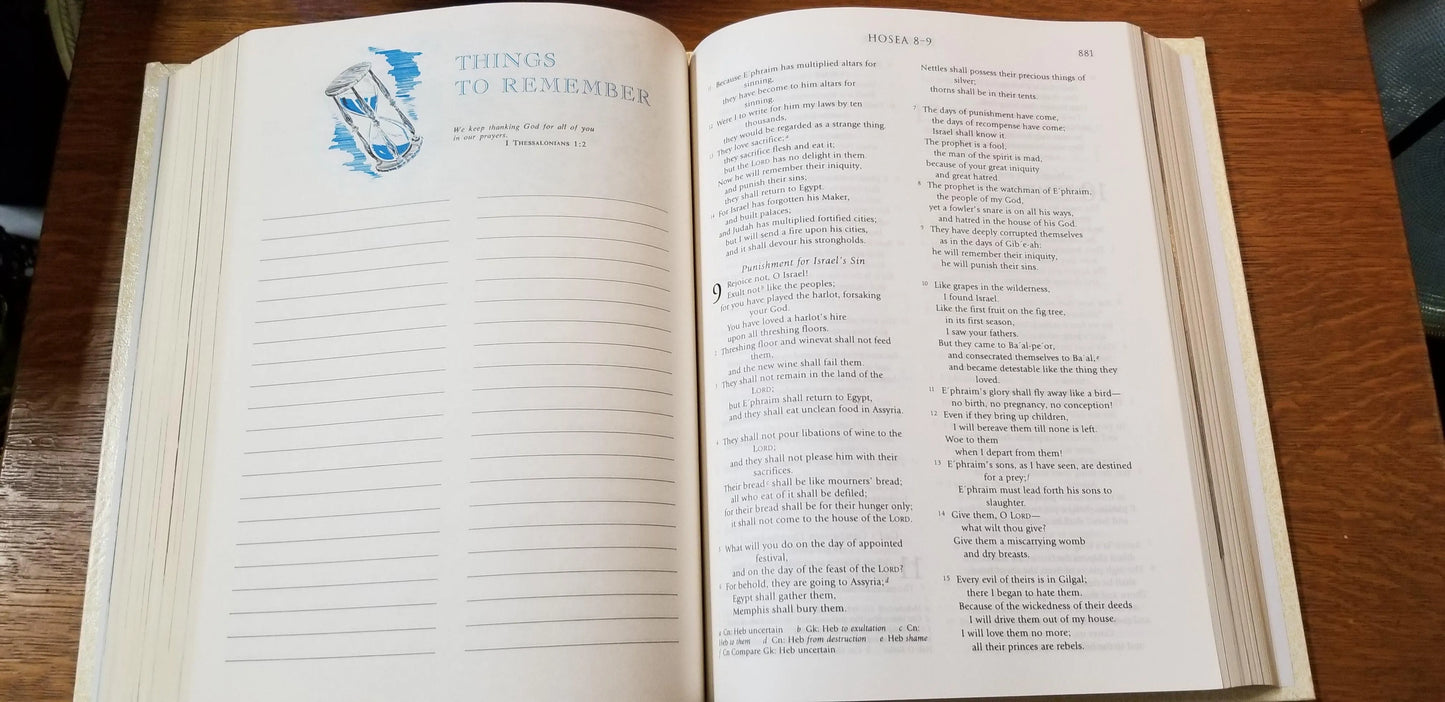 THINGS
TO REMEMBER
We keep thanking God for all of you
in our prayers.
I THESSALONIANS 1:2
HOSEA 8–9
881
11 Because E′phraim has multiplied altars for
sinning,
they have become to him altars for
sinning.
12 Were I to write for him my laws by ten
thousands,
they would be regarded as a strange thing.
13 They love sacrifice;a
they sacrifice flesh and eat it;
but the LORD has no delight in them.
Now he will remember their iniquity,
and punish their sins;
they shall return to Egypt.
14 For Israel has forgotten his Maker,
and built palaces;
and Judah has multiplied fortified cities;
but I will send a fire upon his cities,
and it shall devour his strongholds.
Punishment for Israel's Sin
9 Rejoice not, O Israel!
Exult notb like the peoples;
for you have played the harlot, forsaking
your God.
You have loved a harlot's hire
upon all threshing floors.
2 Threshing floor and winevat shall not feed
them,
and the new wine shall fail them.
3 They shall not remain in the land of the
LORD;
but E′phraim shall return to Egypt,
and they shall eat unclean food in Assyria.
4 They shall not pour libations of wine to the
LORD;
and they shall not please him with their
sacrifices.
Their breadc shall be like mourners' bread;
all who eat of it shall be defiled;
for their bread shall be for their hunger only;
it shall not come to the house of the LORD.
5 What will you do on the day of appointed
festival,
and on the day of the feast of the LORD?
6 For behold, they are going to Assyria;d
Egypt shall gather them,
Memphis shall bury them.
Nettles shall possess their precious things of
silver;
thorns shall be in their tents.
7 The days of punishment have come,
the days of recompense have come;
Israel shall know it.
The prophet is a fool,
the man of the spirit is mad,
because of your great iniquity
and great hatred.
8 The prophet is the watchman of E′phraim,
the people of my God,
yet a fowler's snare is on all his ways,
and hatred in the house of his God.
9 They have deeply corrupted themselves
as in the days of Gib′e-ah:
he will remember their iniquity,
he will punish their sins.
10 Like grapes in the wilderness,
I found Israel.
Like the first fruit on the fig tree,
in its first season,
I saw your fathers.
But they came to Ba′al-pe′or,
and consecrated themselves to Ba′al,e
and became detestable like the thing they
loved.
11 E′phraim's glory shall fly away like a bird—
no birth, no pregnancy, no conception!
12 Even if they bring up children,
I will bereave them till none is left.
Woe to them
when I depart from them!
13 E′phraim's sons, as I have seen, are destined
for a prey;f
E′phraim must lead forth his sons to
slaughter.
14 Give them, O LORD—
what wilt thou give?
Give them a miscarrying womb
and dry breasts.
15 Every evil of theirs is in Gilgal;
there I began to hate them.
Because of the wickedness of their deeds
I will drive them out of my house.
I will love them no more;
all their princes are rebels.
a Cn: Heb uncertain b Gk: Heb to exultation c Cn:
Heb to them d Cn: Heb from destruction e Heb shame
f Cn Compare Gk: Heb uncertain